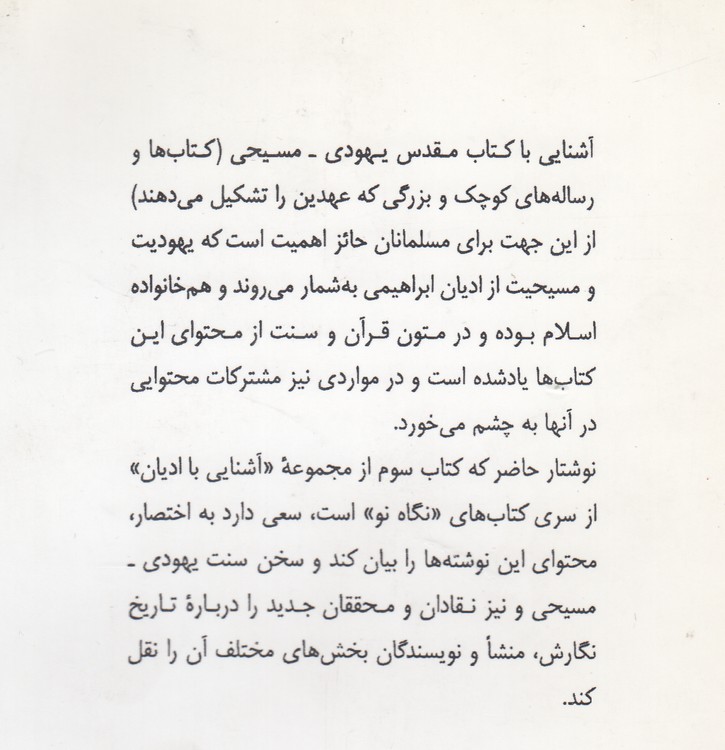 آشنایی با کتاب مقدس یهودی ـ مسیحی (کتاب‌ها و
رساله‌های کوچک و بزرگی که عهدین را تشکیل می‌دهند)
از این جهت برای مسلمانان حائز اهمیت است که یهودیت
و مسیحیت از ادیان ابراهیمی به‌شمار می‌روند و هم‌خانواده
اسلام بوده و در متون قرآن و سنت از محتوای این
کتاب‌ها یادشده است و در مواردی نیز مشترکات محتوایی
در آنها به چشم می‌خورد.
نوشتار حاضر که کتاب سوم از مجموعهٔ «آشنایی با ادیان»
از سری کتاب‌های «نگاه نو» است، سعی دارد به اختصار،
محتوای این نوشته‌ها را بیان کند و سخن سنت یهودی ـ
مسیحی و نیز نقادان و محققان جدید را دربارهٔ تاریخ
نگارش، منشأ و نویسندگان بخش‌های مختلف آن را نقل
کند.